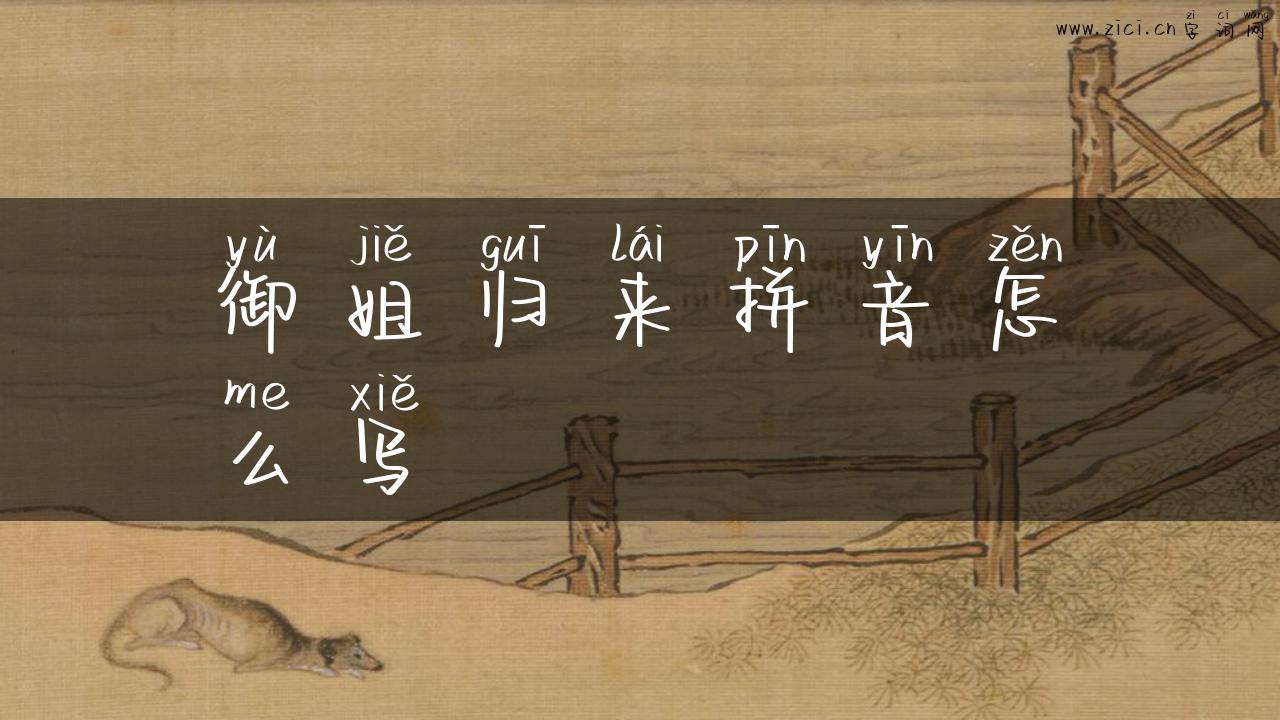 zì cí wǎng
www.zici.cn 字词网
yù jiě guī lái pīn yīn zěn
御姐归来拼音怎
me xiě
么写